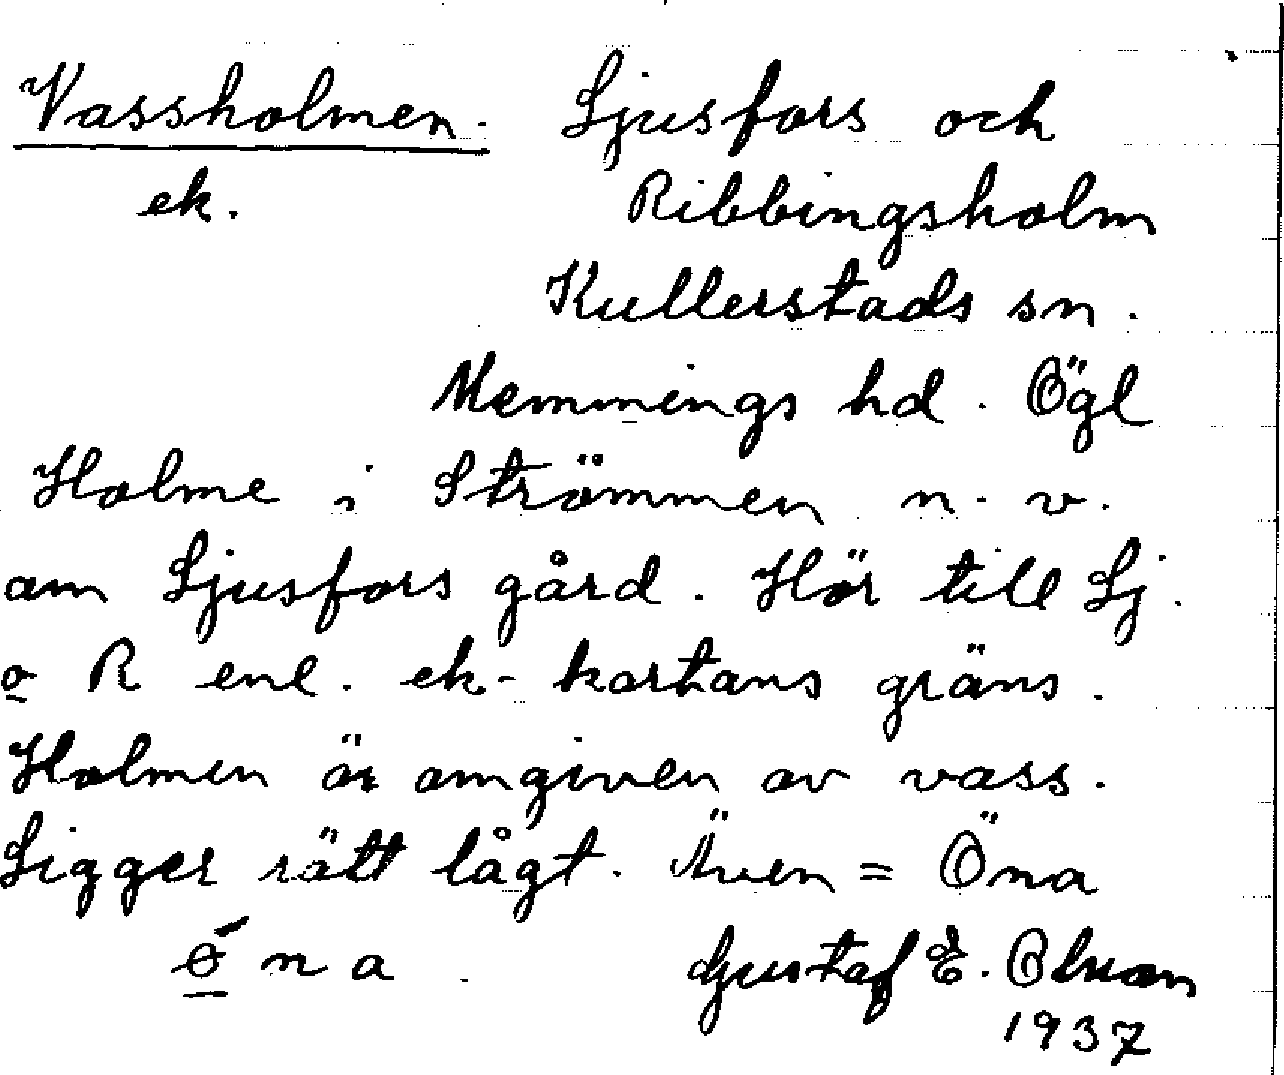 Vassholmen. Ljusfors och
ek. Ribbingsholm
Kullerstads sn.
Memmings hd. Ögl
Holme i Strömmen n. v.
om Ljusfors gård. Hör till Lj.
o R enl. ek-kartans gräns.
Holmen är omgiven av vass.
Ligger rätt lågt. Även = Öna
ǿ n a. Gustaf E. Olsson
1937